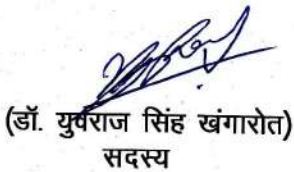 (डॉ. युवराज सिंह खंगारोत)
सदस्य